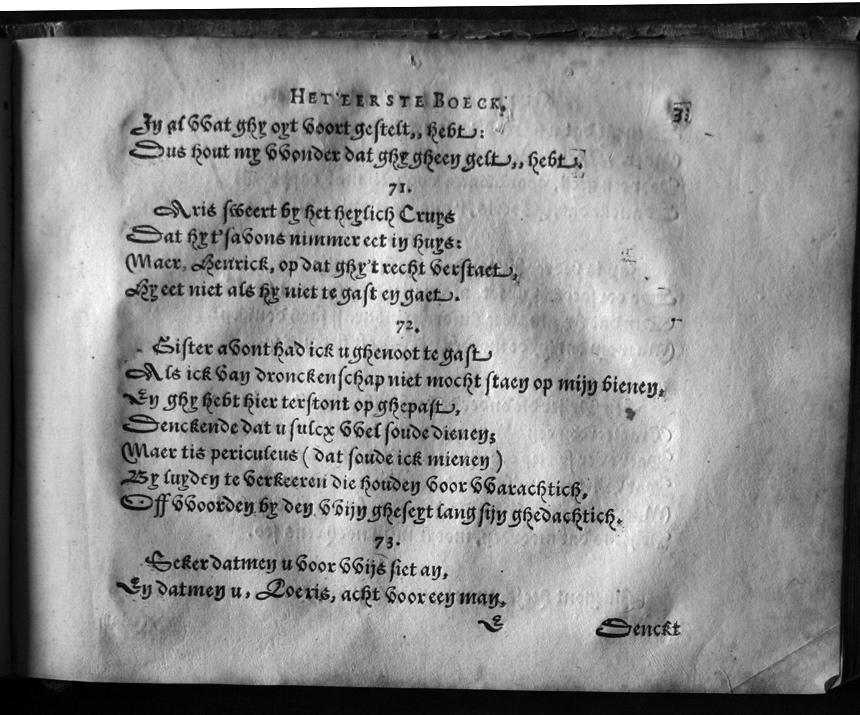 HET EERSTE BOECK. 31
In al wat ghy oyt voort gestelt,, hebt:
Dus hout my wonder dat ghy gheen gelt,, hebt.
71.
Aris sweert by het heylich Cruys
Dat hy t'savons nimmer eet in huys:
Maer, Henrick, op dat ghy't recht verstaet,
Hy eet niet als hy niet te gast en gaet.
72.
Gister avont had ick u ghenoot te gast
Als ick van dronckenschap niet mocht staen op mijn bienen,
En ghy hebt hier terstont op ghepast,
Denckende dat u sulcx wel soude dienen;
Maer tis periculeus (dat soude ick mienen)
By luyden te verkeeren die houden voor warachtich,
Off woorden by den wijn gheseyt lang sijn ghedachtich.
73.
Seker datmen u voor wijs siet an,
En datmen u, Poeris, acht voor een man,
E Denckt